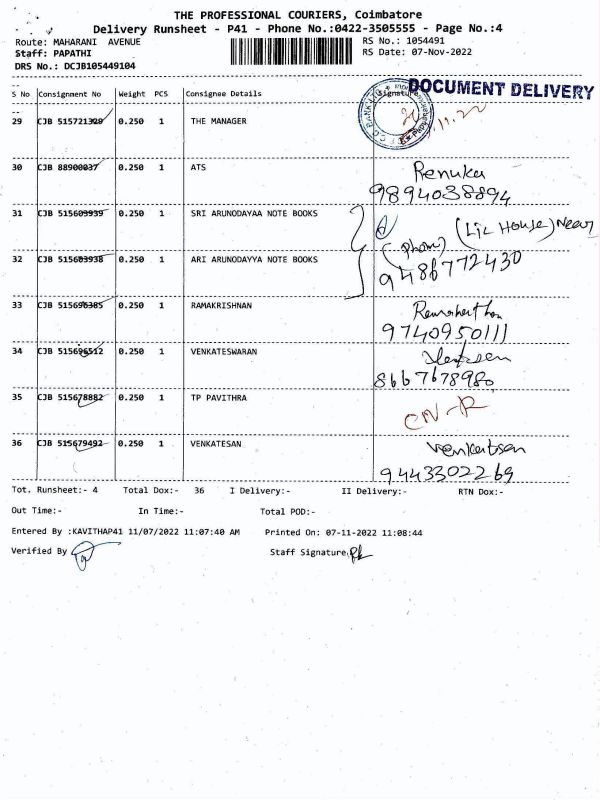 THE PROFESSIONAL COURIERS, Coimbatore
Delivery Runsheet - P41 - Phone No.:0422-3505555 - Page No.:4
Route: MAHARANI AVENUE RS No.: 1054491
Staff: PAPATHI RS Date: 07-Nov-2022
DRS No.: DCJB105449104
DOCUMENT DELIVERY
S No Consignment No Weight PCS Consignee Details Signature
29 CJB 515721329 0.250 1 THE MANAGER
11.22
30 CJB 88900037 0.250 1 ATS Renuka
9894038894
31 CJB 515603939 0.250 1 SRI ARUNODAYAA NOTE BOOKS
(LIC House) Near
(phom)
32 CJB 515603938 0.250 1 ARI ARUNODAYYA NOTE BOOKS 9486772430
33 CJB 515696385 0.250 1 RAMAKRISHNAN
9740950111
34 CJB 515696512 0.250 1 VENKATESWARAN
8667678980
35 CJB 515678882 0.250 1 TP PAVITHRA CN-R
36 CJB 515679492 0.250 1 VENKATESAN Venkatesan
9443302269
Tot. Runsheet:- 4 Total Dox:- 36 I Delivery:- II Delivery:- RTN Dox:-
Out Time:- In Time:- Total POD:-
Entered By :KAVITHAP41 11/07/2022 11:07:40 AM Printed On: 07-11-2022 11:08:44
Verified By Staff Signature